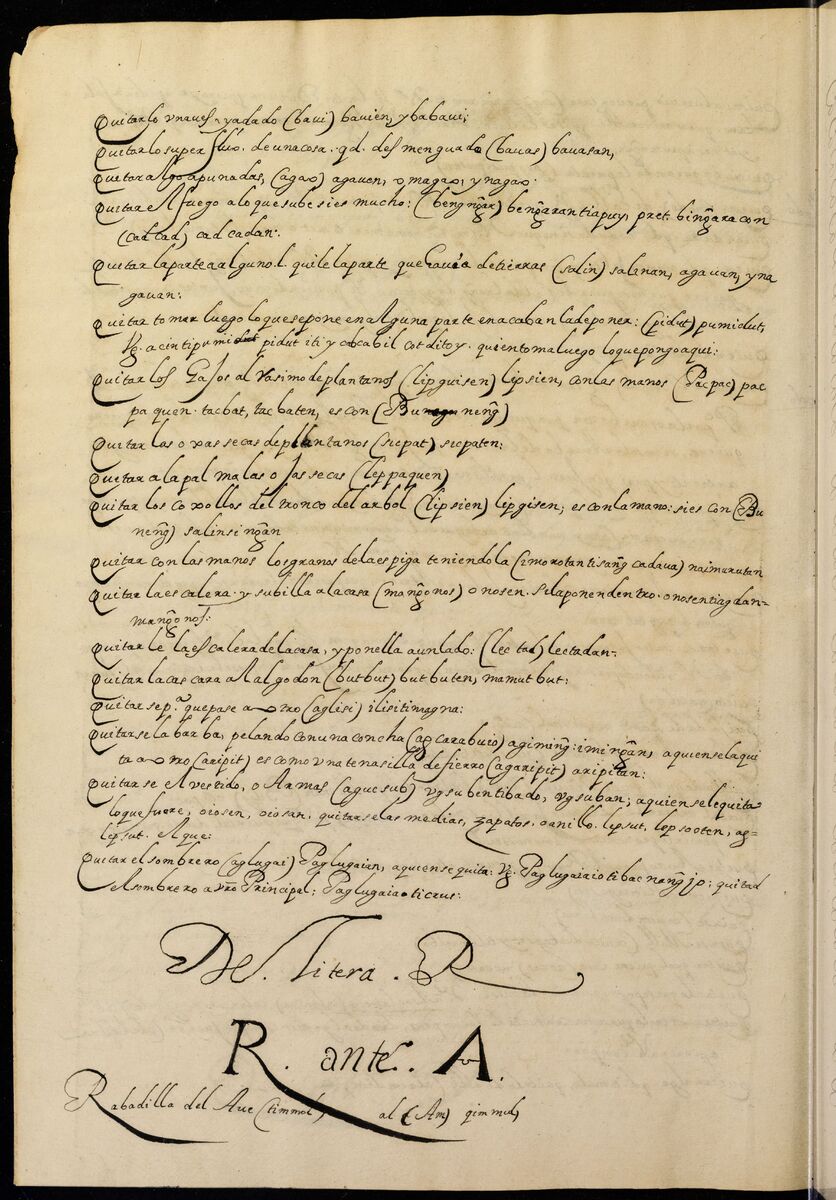 Quitarlo vna ves yadado (bavi) bavien, y babavi;
Quitar lo superfluo. de una cosa. qd. desmenguado (bavas) bavasan,
Quitar algo apunadas, (agao) agaven, o magao, y nagao.
Quitar el fuego a lo que sube si es mucho: (bengn̄gar) ben̄garantiapuy, pret. bin̄gara con
(cad cad) cad cadan:
Quitar la parte a alguno. l. quile la parte que havia de tierras (salin) salinan, agavan, y na
gavan:
Quitar tomar luego lo que se pone en alguna parte en acabanla de poner: (pidut) pumidut,
Vg. acintipumidut pidut iti y cabil cot ditoy. quien toma luego lo que pongo aqui:
Quitar los Gajos al Rasimo de plantanos (lipguisen) lipsien, con las manos (Pacpac) pac
pa quen. tacbat, tacbaten, es con (Bu neng)
Quitar las oxas secas de plantanos (sicpat) sicpaten:
Quitar a la palma las ojas secas (leppaquen)
Quitar los coxollos del tronco del arbol (lipsien) lipgisen; es con la mano: si es con (Bu
nen̄g) salinsin̄gan
Quitar con las manos los granos de la espiga teniendola (imorotantisan̄g cadava) naimurutan
Quitar la escalera. y subilla a la casa (man̄gonos) o nosen. Si la ponen dentro. o nosentiagdan-
man̄gonos:
Quitarle la escalera de la casa, y ponella a un lado: (lectad) lectadan:
Quitar la cascara al algodon (butbut) butbuten, mamutbut:
Quitarse p.ª que pase a otro (aglisi) ilisitimagna:
Quitarse la barba, pelando con una concha (ag carabuio) agimin̄g: imin̄gan, a quien se la qui
ta a otro (aripit) es como vna tenasilla de fierro (agaripit) aripitan:
Quitarse el vestido, o Armas (aguesub) vgsubentibado, vgsuban; a quien se le quita
lo que fuere, oiosen, oiosan, quitarse las medias, zapatos. o anillo. lepsut, lepsooten, ag-
lepsut. Aque:
Quitar el sombrero (aglugai) Paglugaian, a quien se quita: Vg. Paglugaiaiotibac nan̄g jo: quitad
el sombrero a vr̄o Principal: Paglugaiaoticrus:
De. litera. R
R. ante. A.
Rabadilla del Ave (timmol, al (Am) qimmul,